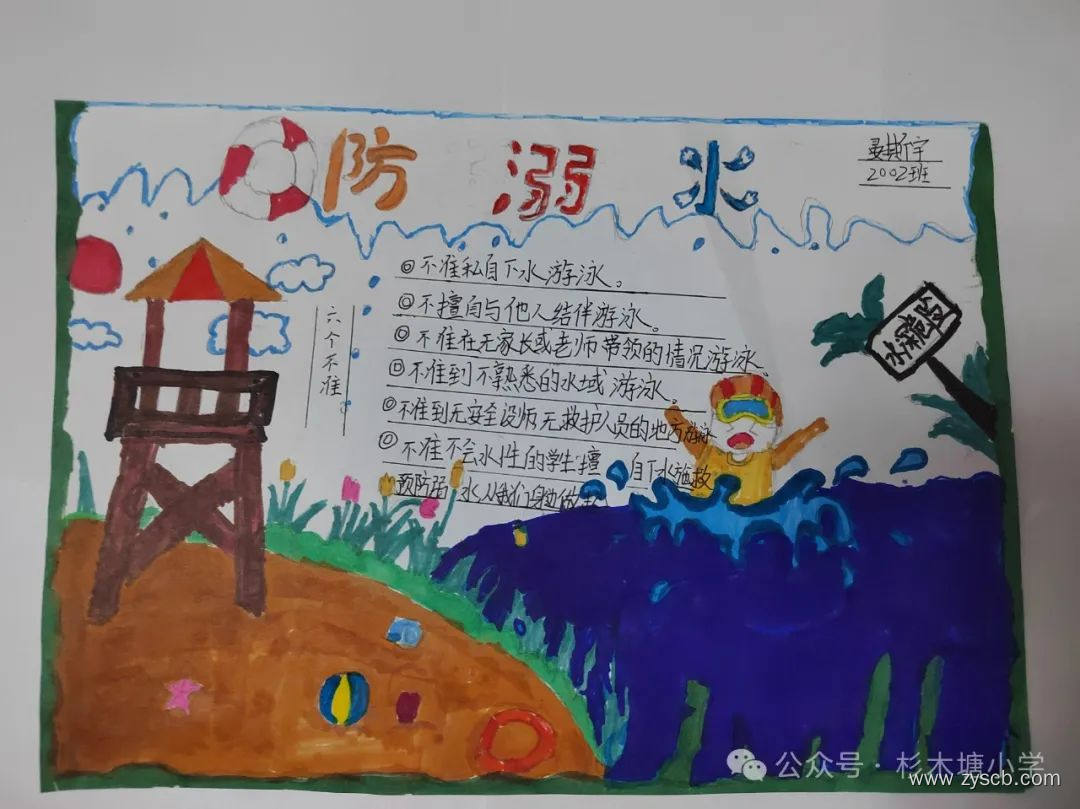 防溺水
2002班
六个不准
◎不准私自下水游泳。
◎不擅自与他人结伴游泳。
◎不准在无家长或老师带领的情况游泳。
◎不准到不熟悉的水域游泳。
◎不准到无安全设师无救护人员的地方游泳
◎不准不会水性的学生擅自下水施救
预防溺水从我们身边做起
水深危险
公众号·杉木塘小学
www.zyscb.com